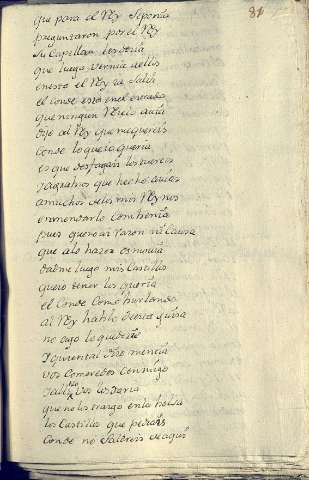 81
que para el Rey se ponia
preguntaron por el Rey
su Capellan les decia
que luego vernia a ellos
en esto el Rey ya salia
el conde esta en el estrado
que ningun Rei avia
dijo al Rey que me quereis
conde lo que yo queria
es que desfagais los tuertos
que hecho aviais
a muchos de los mis Reynos
enmendarlo convernia
pues quereis razon ni causa
que a lo hazer os movia
dadme luego mis Castillos
quiero tener los queria
el Conde como burlando
al Rey hablo de esta guisa
no digo lo que
que tal dize mentia
vos comeredes conmigo
y alli vos los daria
que no los traygo en la bolsa
los Castillos que pediais
Conde no saldreis de aqui